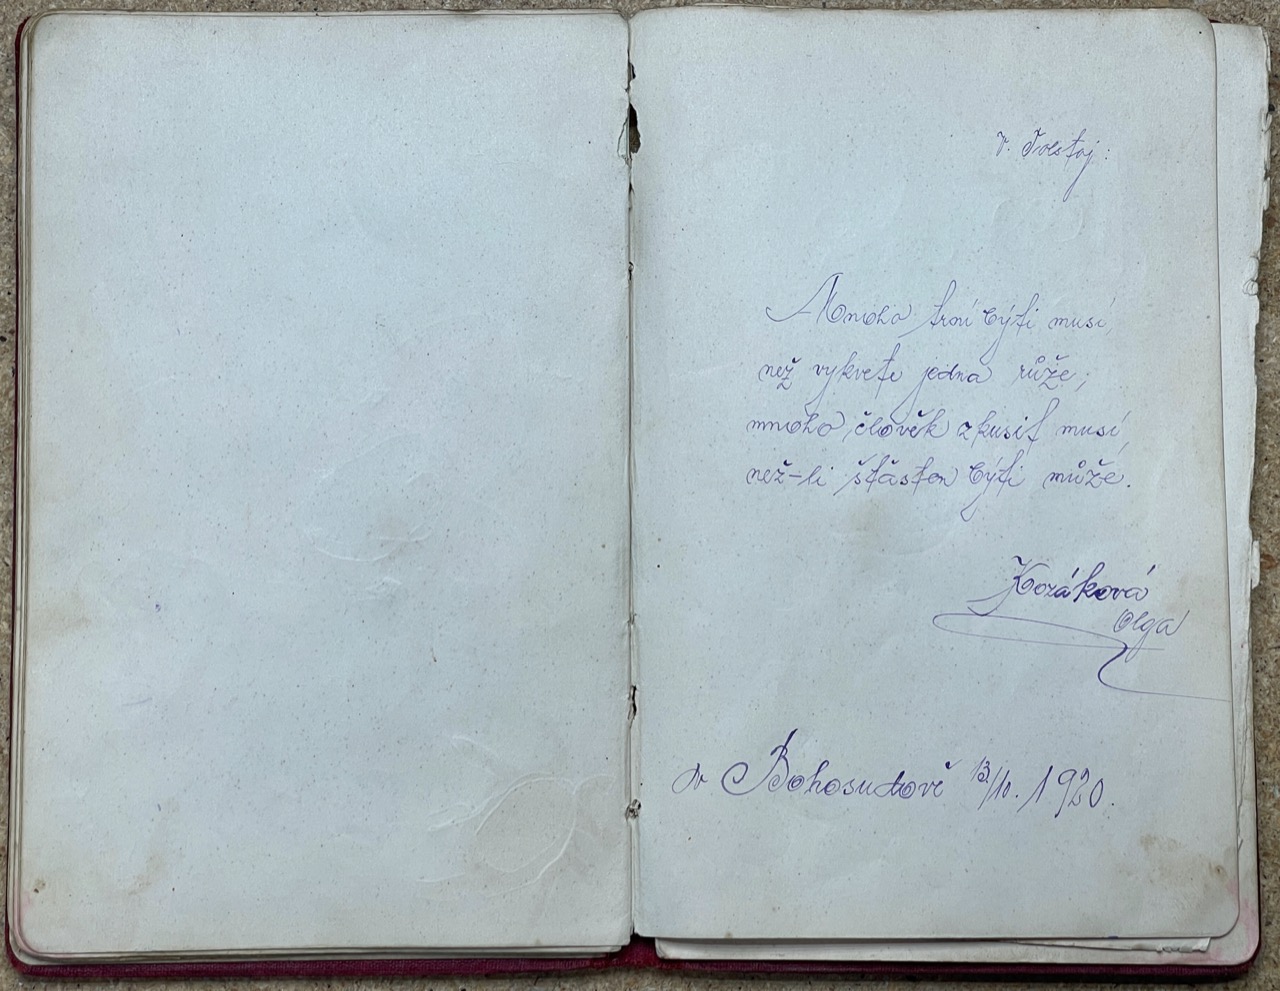 V. Tolstoj:
Mnoho trní býti musí,
než vykvete jedna růže;
mnoho člověk zkusit musí,
než-li šťásten býti může.
Kozáková
Olga
V Bohosudově 13./10. 1920.